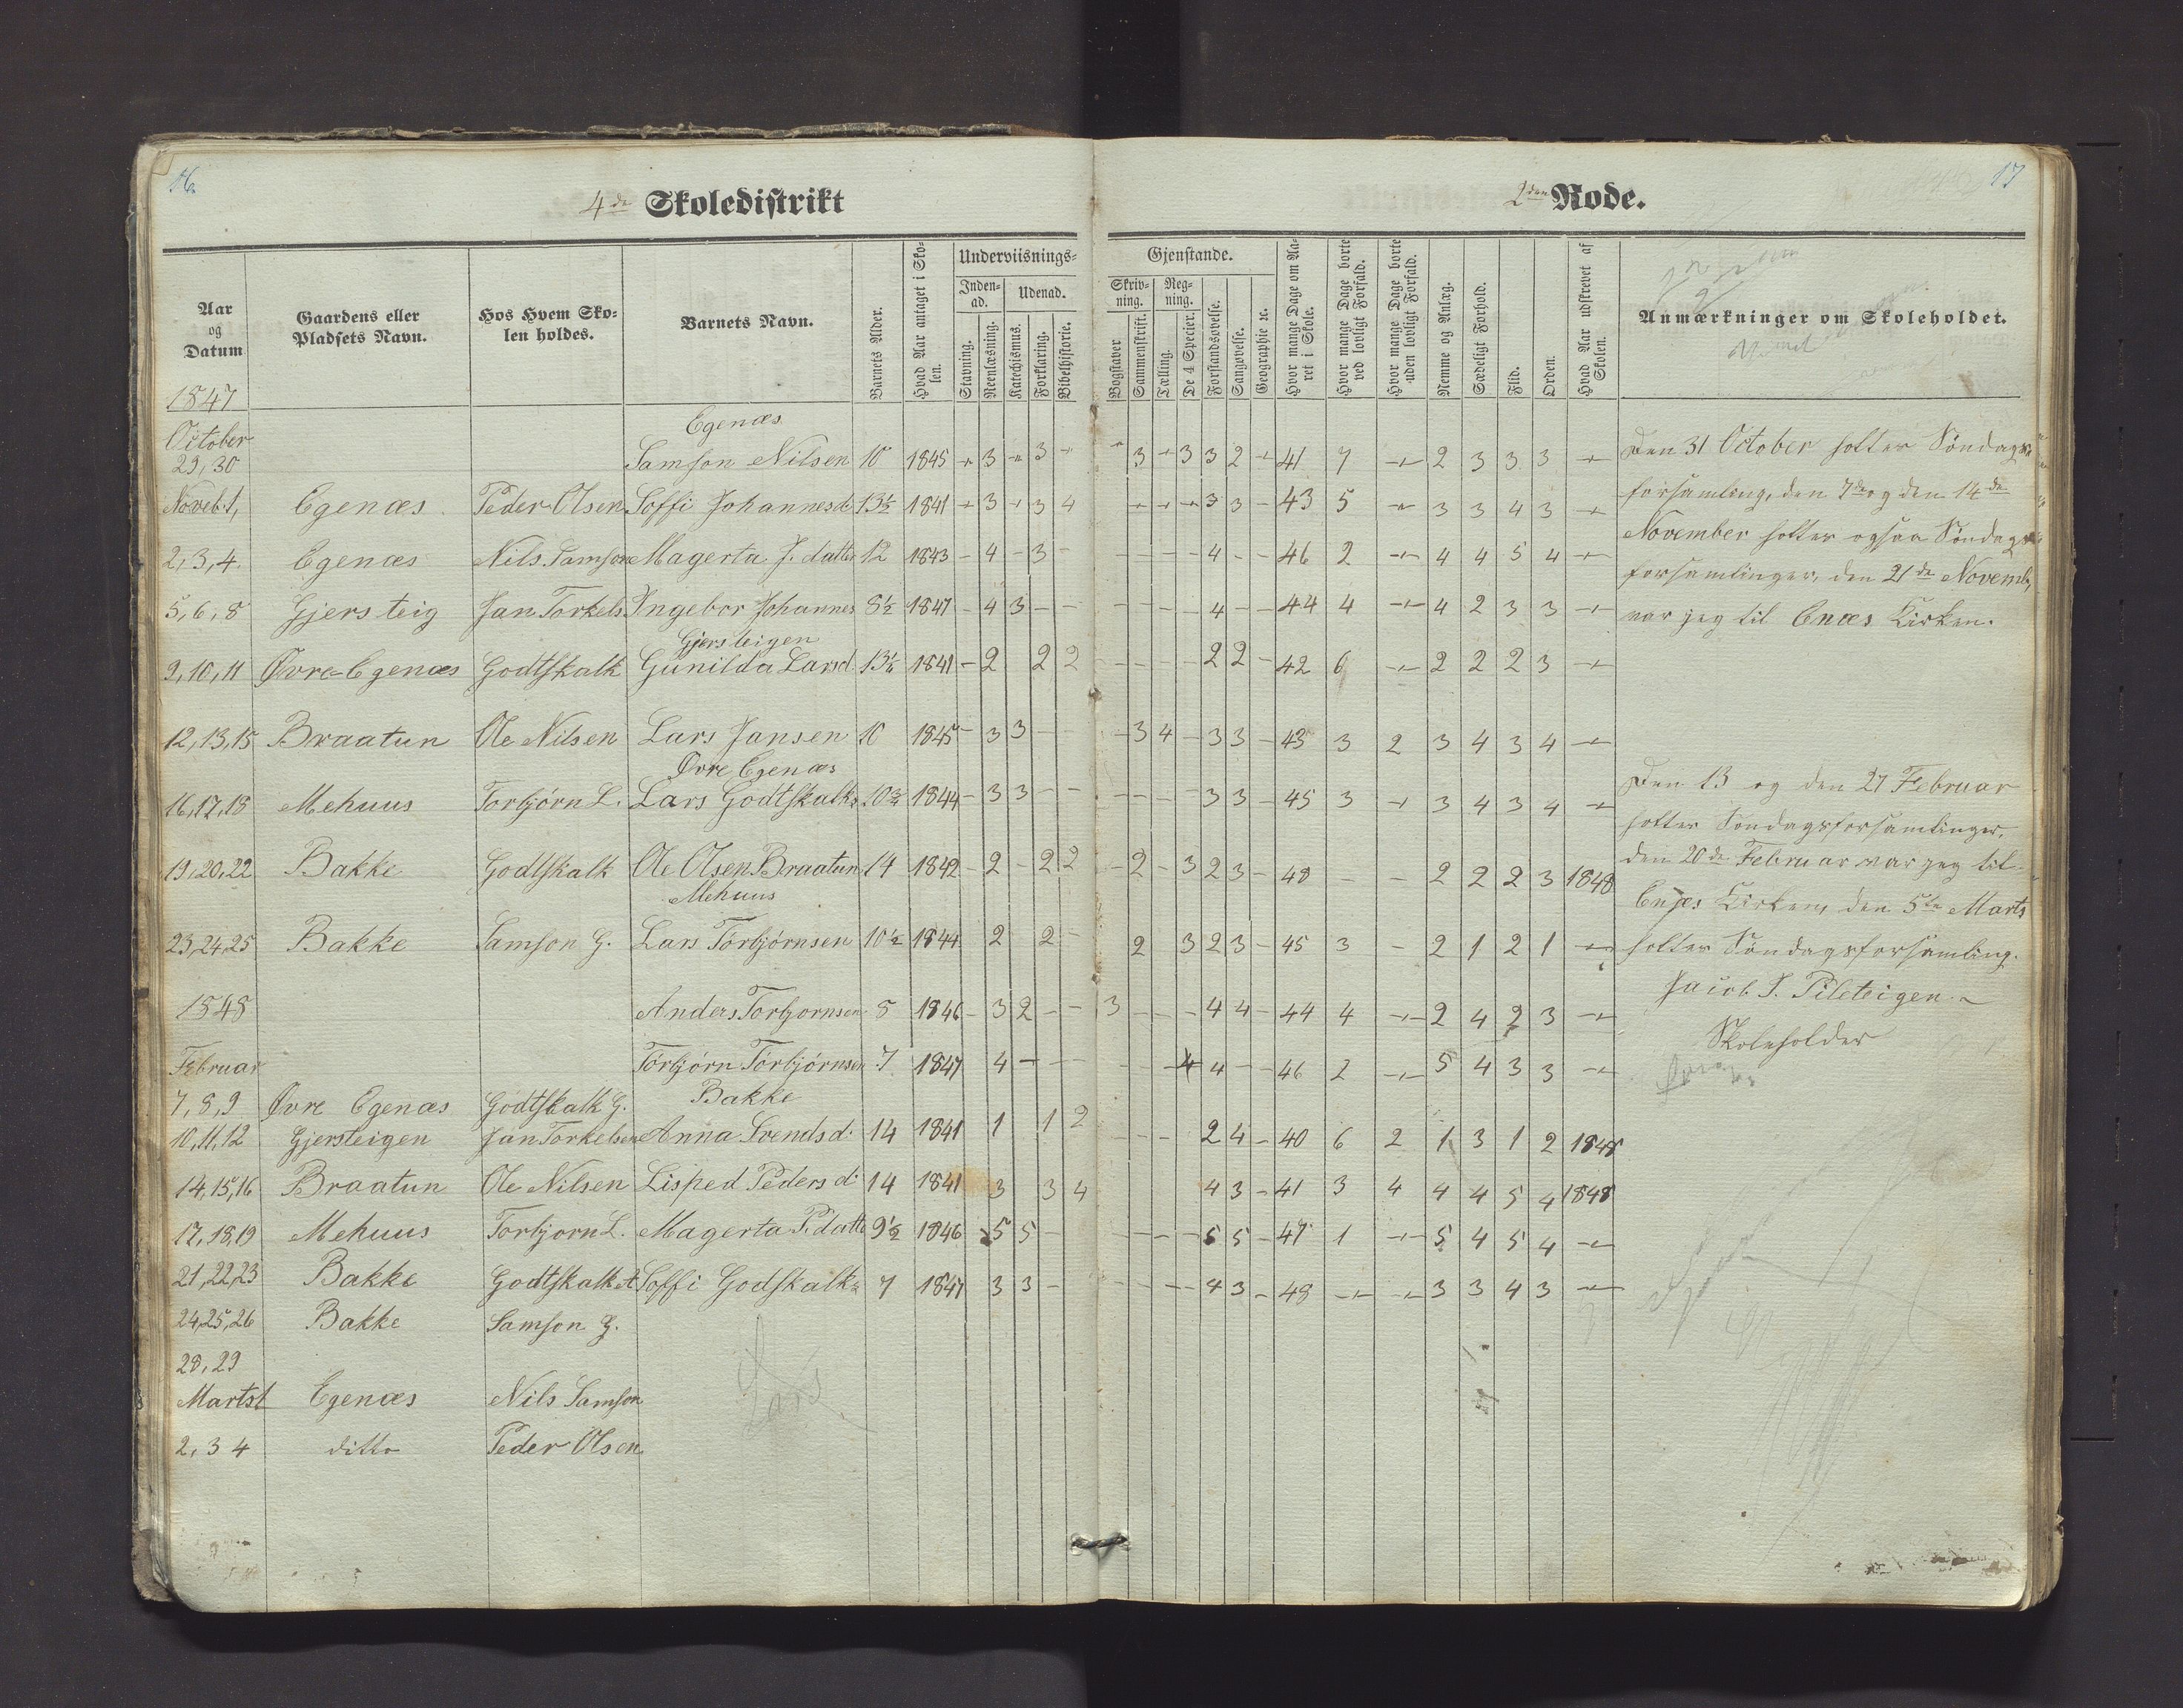 16
4de Skoledistrikt
Underviisnings-
Aar og Datum
Gaardens eller Pladsets Navn.
Hos Hvem Skolen holdes.
Barnets Navn.
Barnets Alder.
Hvad Aar antaget i Skolen.
Inden-ad.
Udenad.
Stavning.
Reenlæsning.
Katechismus.
Forklaring.
Bibelhistorie.
1847
Egenæs
October
29, 30 Samson Nilsen 10 1845 3 3
Noveb. 1, Egenæs Peder Olsen Soffi Johannesd 13½ 1841 3 3 4
2, 3, 4 Egenæs Nils Samson Magerta J. datte 12 1843 - 4 - 3 -
5, 6, 8 Gjersteig Jan Torkels Ingebor Johannes 8½ 1847 - 4 3 - -
Gjersteigen
9, 10, 11 Øvre-Egenæs Godtskalk Gunilda Larsd 13½ 1841 - 2 2 2
12, 13, 15 Braatun Ole Nilsen Lars Jansen 10 1845 - 3 3 - -
Øvre Egenæs
16, 17, 18 Mehuus Torbjørn L. Lars Godtskalks 10¾ 1844 - 3 3 - -
19, 20, 22 Bakke Godtskalk Ole Olsen Braatun 14 1842 - 2 - 2 2
Mehuus
23, 24, 25 Bakke Samson G. Lars Torbjørnsen 10½ 1844 2 2 -
1848 Anders Torbjornsen 8 1846 - 3 2 - -
Februar Torbjørn Torbjørnsen 7 1847 4 - - -
7, 8, 9 Øvre Egenæs Godtskalk G. Bakke
10, 11, 12 Gjersteigen Jan Torkelsen Anna Svends d: 14 1841 1 1 2
14, 15, 16 Braatun Ole Nilsen Lisped Peders d: 14 1841 3 3 4
17, 18, 19 Mehuus Torbjorn L. Magerta P. datte 9½ 1846 5 5 -
21, 22, 23 Bakke Godtskalk A Soffi Godskalk 7 1847 3 3 -
24, 25, 26 Bakke Samson G.
28, 29
Marts 1 Egenæs Nils Samson
2, 3 4 ditto Peder Olsen
Lars
17
2den Rode.
Gjenstande.
Skriv-ning.
Reg-ning.
Bogstaver
Sammenskrift.
Tælling.
De 4 Specier.
Forstandsøvelse.
Sangøvelse.
Geographie ꝛc.
Hvor mange Dage om Aaret i Skole.
Hvor mange Dage borte ved lovligt Forfald.
Hvor mange Dage borte uden lovligt Forfald.
Nemme og Anlæg.
Sædeligt Forhold.
Flid.
Orden.
Hvad Aar udskrevet af Skolen.
Anmærkninger om Skoleholdet.
3 3 3 2 41 7 2 3 3 3
3 3 - 43 5 3 3 4 3
- - - - 4 - - 46 2 4 4 5 4
- - - - 4 - - 44 4 4 2 3 3
- - - - 2 2 - 42 6 2 2 2 3
- 3 4 - 3 3 - 43 3 2 3 4 3 4
- - - - 3 3 - 45 3 3 4 3 4
- 2 - 3 2 3 - 48 - - 2 2 2 3 1848
2 3 2 3 - 45 3 - 2 1 2 1
3 - - - 4 4 - 44 4 2 4 2 3
- - - 4 4 - - 46 2 5 4 3 3
- - - 2 4 - 40 6 2 1 3 1 2 1848
4 3 - 41 3 4 4 4 5 4 1848
- - - - 5 5 - 47 1 5 4 5 4
- - - - 4 3 - 48 3 3 4 3
Den 31 October holtes Söndags
forsamling, den 7de og den 14de
November holtes ogsaa Söndags
forsamlinger, den 21de Novemb,
var jeg til Enæs Kirken.
Den 13 og den 27 Februar
holtes Söndagsforsamlinger,
den 20de Februar var jeg til
Enæs Kirken, den 5te Marts
holtes Söndagsforsamling.
Jacob J. Pileteigen
Skoleholder